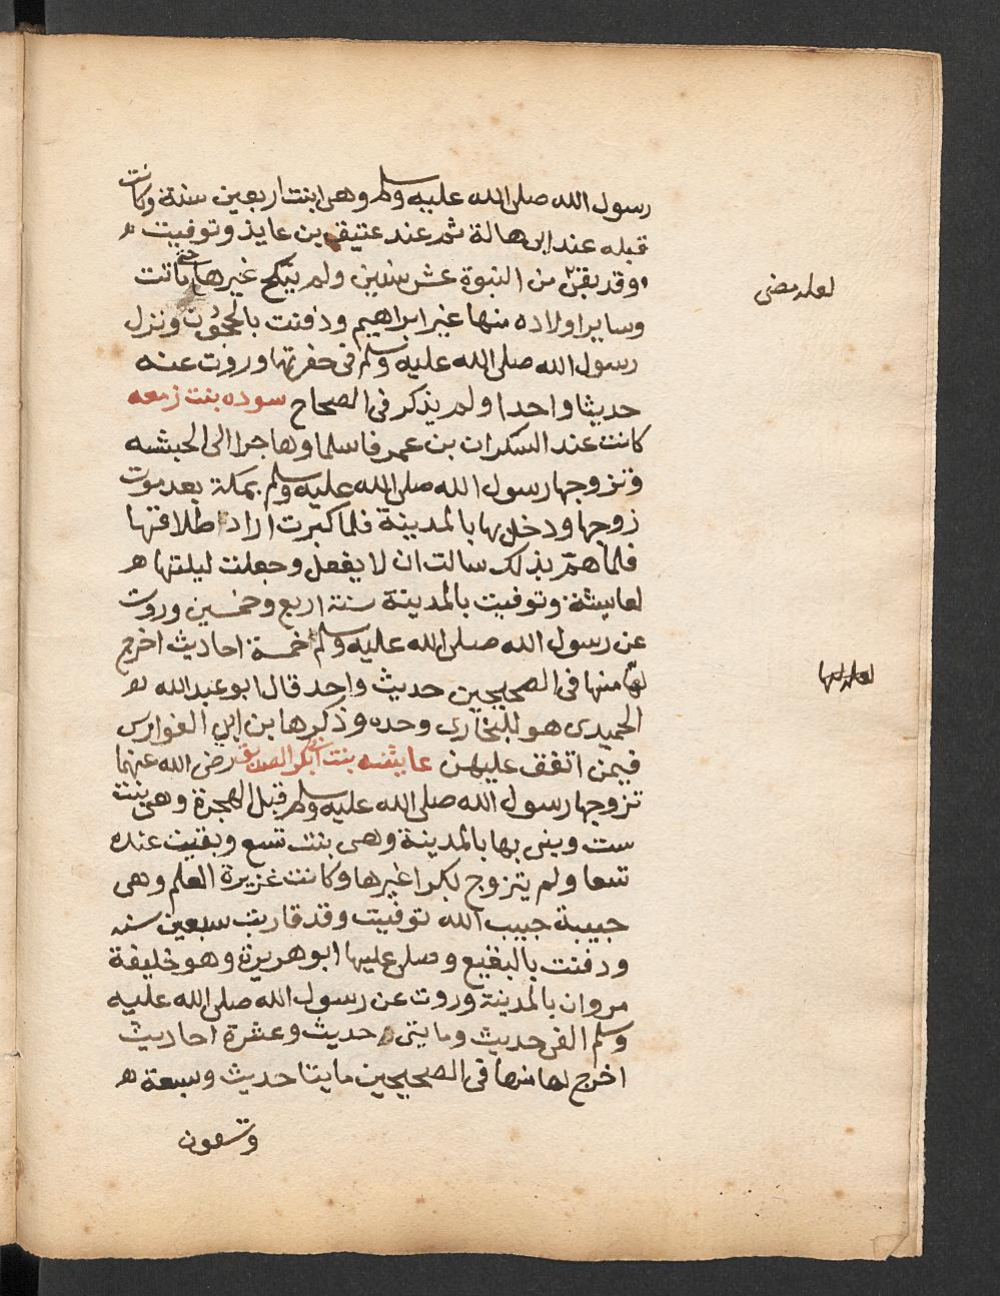 رسول الله صلى الله عليه وسلم وهي ابنت اربعين سنة وكانت
قبله عند ابن هالة ثم عند عتيق بن عايذ وتوفيت
وقد بقين من النبوة عشر سنين ولم ينكح غيرها حتى ماتت
لعله مضى
وساير اولاده منها غير ابراهيم ودفنت بالحجون ونزل
رسول الله صلى الله عليه وسلم فى حفرتها وروت عنه
حديثا واحدا ولم يذكر فى الصحاح سوده بنت زمعه
كانت عند السكران بن عمر فاسلما وهاجرا الى الحبشه
وتزوجها رسول الله صلى الله عليه وسلم بمكة بعد موت
زوجها ودخل بها بالمدينة فلما كبرت اراد اطلاقتها
فلما همّ بذلك سالت ان لا يفعل وجعلت ليلتها
لعايشة وتوفيت بالمدينة سنة اربع وخمسين وروت
عن رسول الله صلى الله عليه وسلم خمسة احاديث اخرج
لها منها فى الصحيحين حديث واحد قال ابو عبد الله
الحميدى هو للبخارى وحده وذكرها بن ابي الفوارس
فيمن اتفق عليهن عايشه بنت ابى بكر الصديق رضى الله عنهما
تزوجها رسول الله صلى الله عليه وسلم قبل الهجرة وهى بنت
ست وبنى بها بالمدينة وهى بنت تسع وبقيت عنده
تسعا ولم يتزوج بكرا غيرها وكانت غزيرة العلم وهى
حبيبة حبيب الله توفيت وقد قاربت سبعين سنه
ودفنت بالبقيع وصلى عليها ابو هريرة وهو خليفة
مروان بالمدينة وروت عن رسول الله صلى الله عليه
وسلم الفى حديث ومايتى حديث وعشرة احاديث
اخرج لها منها فى الصحيحين مايتا حديث وسبعة
وتسعون